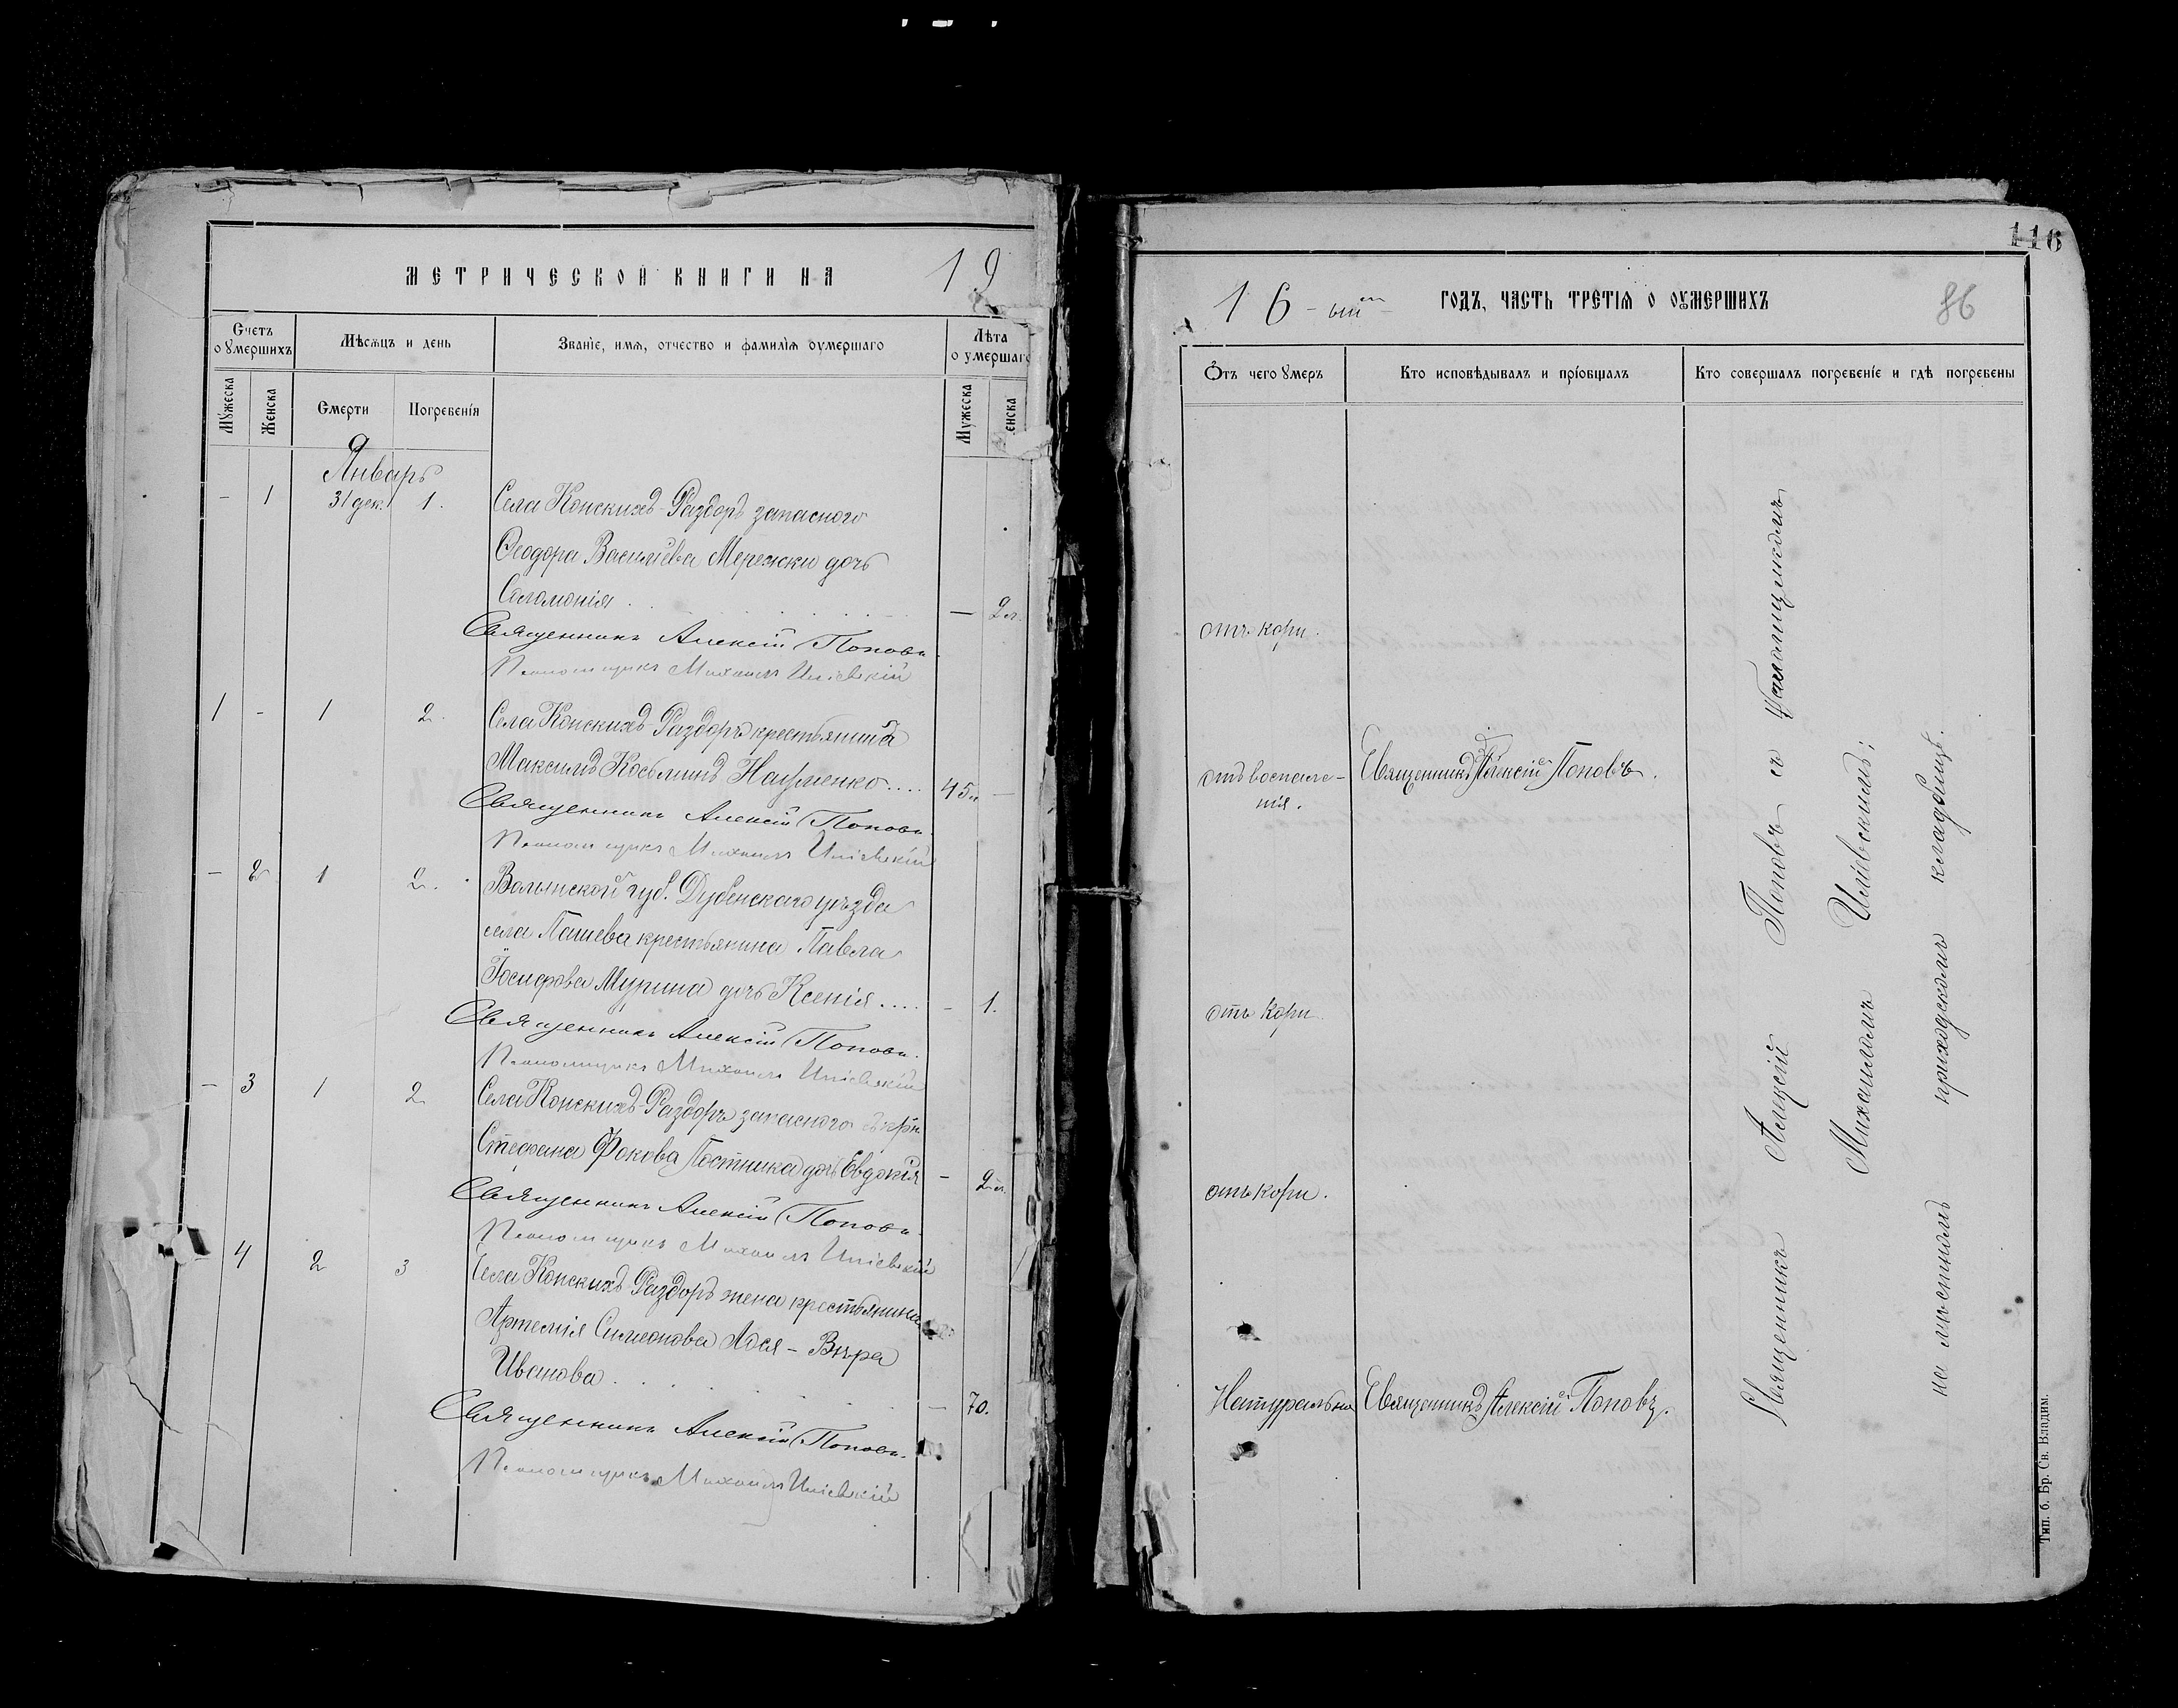 МЕТРИЧЕСКОЙ КНИГИ НА 19
Счетъ оумершихъ
Мѣсяцъ и день
Званіе, имя, отчество и фамилія оумершаго
Лѣта оумершаго
Мужеска
Женска
Смерти
Погребенія
Мужеска
Женска
Январь
- 1 31 дек. 1.
Села Конскихъ-Раздоръ запасного
Ѳеодора Васильева Мережки дочь
Саломонія — 2 л.
Священникъ Алексій Поповъ.
Псаломщикъ Михаилъ Иліевскій
1 - 1 2.
Села Конскихъ-Раздоръ крестьянинъ
Максимъ Косьминъ Науменко.... 45 л. —
Священникъ Алексій Поповъ.
Псаломщикъ Михаилъ Иліевскій
- 2 1 2.
Волынской губ. Дубенскаго уѣзда
села Пашева крестьянина Павла
Іосифова Мурина дочь Ксенія.... - 1.
Священникъ Алексій Поповъ.
Псаломщикъ Михаилъ Иліевскій
- 3 1 2
Села Конскихъ-Раздоръ запасного
Стефана Фокова Постника дочь Евдокія - 2 л.
Священникъ Алексій Поповъ.
Псаломщикъ Михаилъ Иліевскій
- 4 2 3
Села Конскихъ-Раздоръ жена крестьянина
Артемія Симеонова — Вѣра
Иванова — 70.
Священникъ Алексій Поповъ.
Псаломщикъ Михаилъ Иліевскій
116
16-ый ГОДЪ, ЧАСТЬ ТРЕТІЯ О ОУМЕРШИХЪ
86
Отъ чего умеръ
Кто исповѣдывалъ и пріобщалъ
Кто совершалъ погребеніе и гдѣ погребены
отъ кори.
отъ воспале-
нія.
Священникъ Алексій Поповъ.
отъ кори.
отъ кори.
Натурально
Священникъ Алексій Поповъ.
Священникъ Алексій Поповъ съ псаломщикомъ
Михаиломъ Иліевскимъ;
на мѣстномъ приходскомъ кладбищѣ.
Тип. б. Бр. Св. Владим.